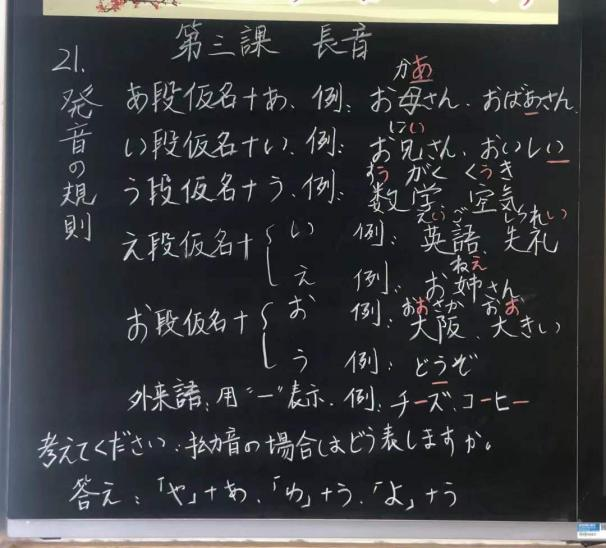 第三課 長音
21.
発音の規則
かあ
あ段仮名+あ、例:お母さん、おばあさん
にい
い段仮名+い、例:お兄さん、おいしい
すう がく くうき
う段仮名+う、例:数学、空気
えいご しつれい
え段仮名+{ い 例:英語、失礼
ねえ
え 例:お姉さん
おおさか おお
お段仮名+{ お 例:大阪、大きい
う 例:どうぞ
外来語:用"ー"表示、例:チーズ、コーヒー
考えてください:拗音の場合はどう表しますか。
答え:「や」+あ、「ゆ」+う、「よ」+う